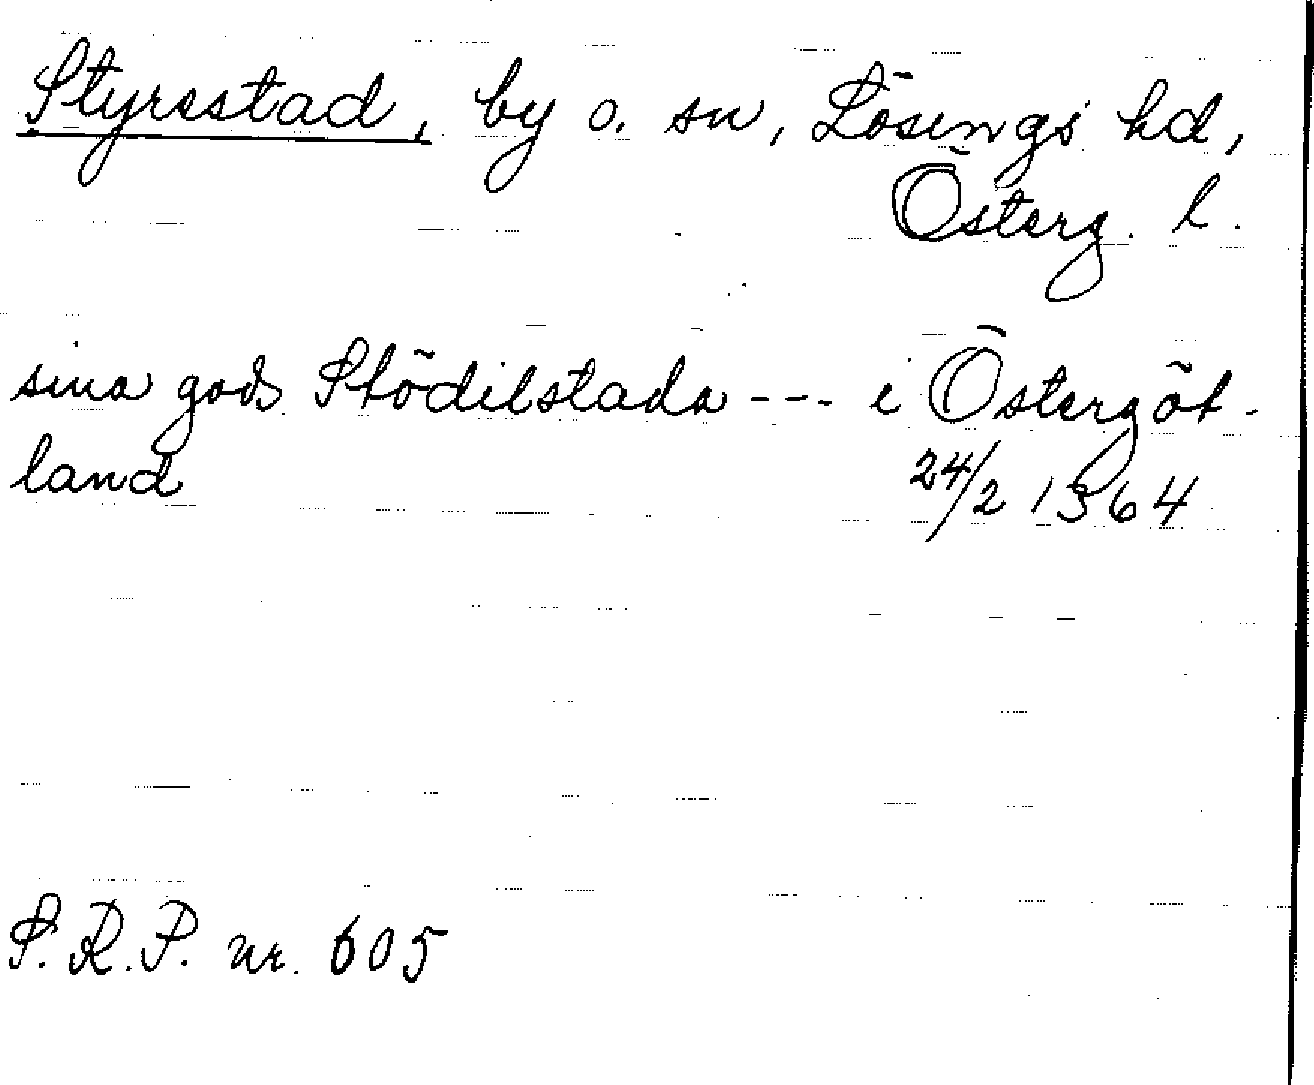 Styrestad, by o. sn, Lösings hd,
Österg. l.
sina gods Stödilstada --- i Östergöt-
land 24/2 1364
S.R.P. nr. 605